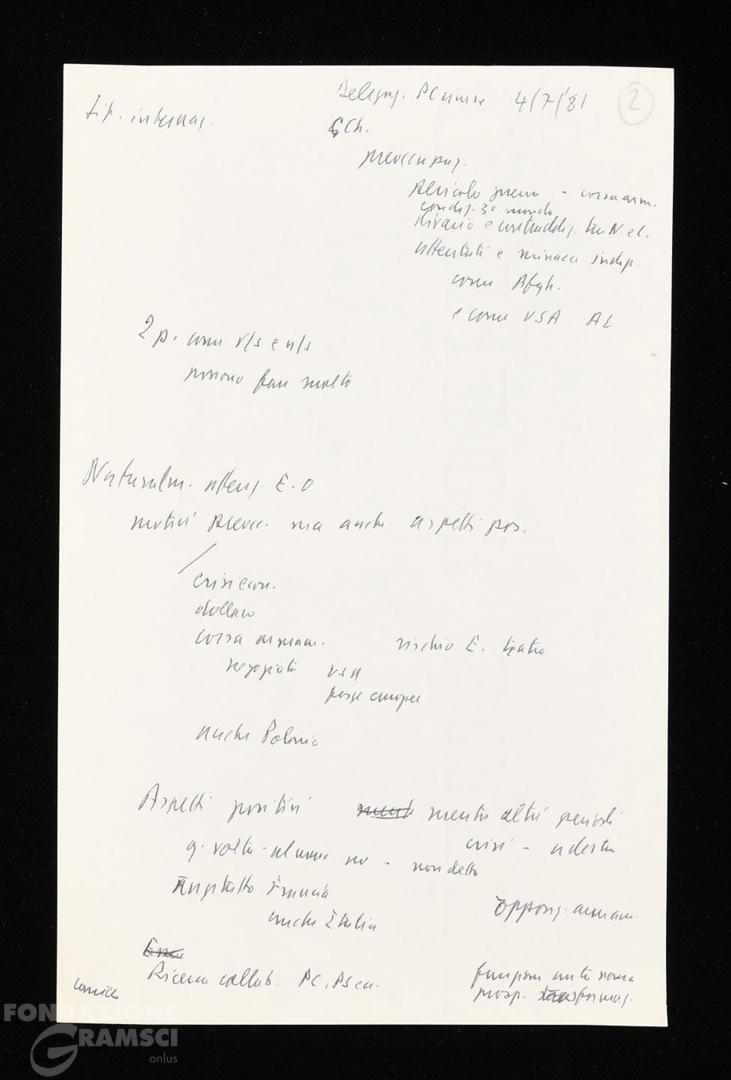 Delegaz. PC 4/7/'81 2
Sit. internaz.
preoccupaz.
pericolo guerra - corsa arm.
condiz. 3° mondo
divario e contraddiz. tra N e S.
attentati e minacce indip.
come Afgh.
e come USA AL
2 p. come n/s e n/s
possono fare molto
Naturalm. attenz. E. O
motivi preocc. ma anche aspetti pos.
crisi econ.
dollaro
corsa armam. rischio E. teatro
negoziati USA
forze europee
anche Polonia
Aspetti positivi mentre altri periodi
q. volta - almeno no - crisi - a destra
non detto
Risultato Francia
anche Italia
oppos. armam.
Ricerca collab. PC, PS ecc.
funzione autonoma
prosp. trasformaz.
FONDAZIONE
GRAMSCI
onlus